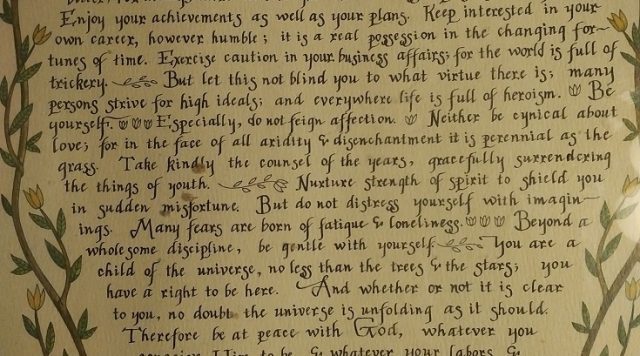 Enjoy your achievements as well as your plans. Keep interested in your
own career, however humble; it is a real possession in the changing for-
tunes of time. Exercise caution in your business affairs; for the world is full of
trickery. But let this not blind you to what virtue there is; many
persons strive for high ideals; and everywhere life is full of heroism. Be
yourself. Especially, do not feign affection. Neither be cynical about
love; for in the face of all aridity & disenchantment it is perennial as the
grass. Take kindly the counsel of the years, gracefully surrendering
the things of youth. Nurture strength of spirit to shield you
in sudden misfortune. But do not distress yourself with imagin-
ings. Many fears are born of fatigue & loneliness. Beyond a
wholesome discipline, be gentle with yourself. You are a
child of the universe, no less than the trees & the stars; you
have a right to be here. And whether or not it is clear
to you, no doubt the universe is unfolding as it should.
Therefore be at peace with God, whatever you
conceive Him to be, & whatever your labors &